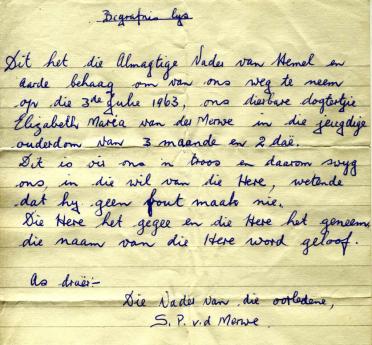 Begrafnis lys
Dit het die Almagtige Vader van Hemel en
aarde behaag om van ons weg te neem
op die 3de Julie 1963, ons dierbare dogtertjie
Elizabeth Maria van der Merwe in die jeugdige
ouderdom van 3 maande en 2 daë.
Dit is vir ons 'n troos en daarom swyg
ons, in die wil van die Here, wetende
dat hy geen fout maak nie.
Die Here het gegee en die Here het geneem,
die naam van die Here word geloof.
As draër:-
Die Vader van die oorledene,
S. P. v. d Merwe.